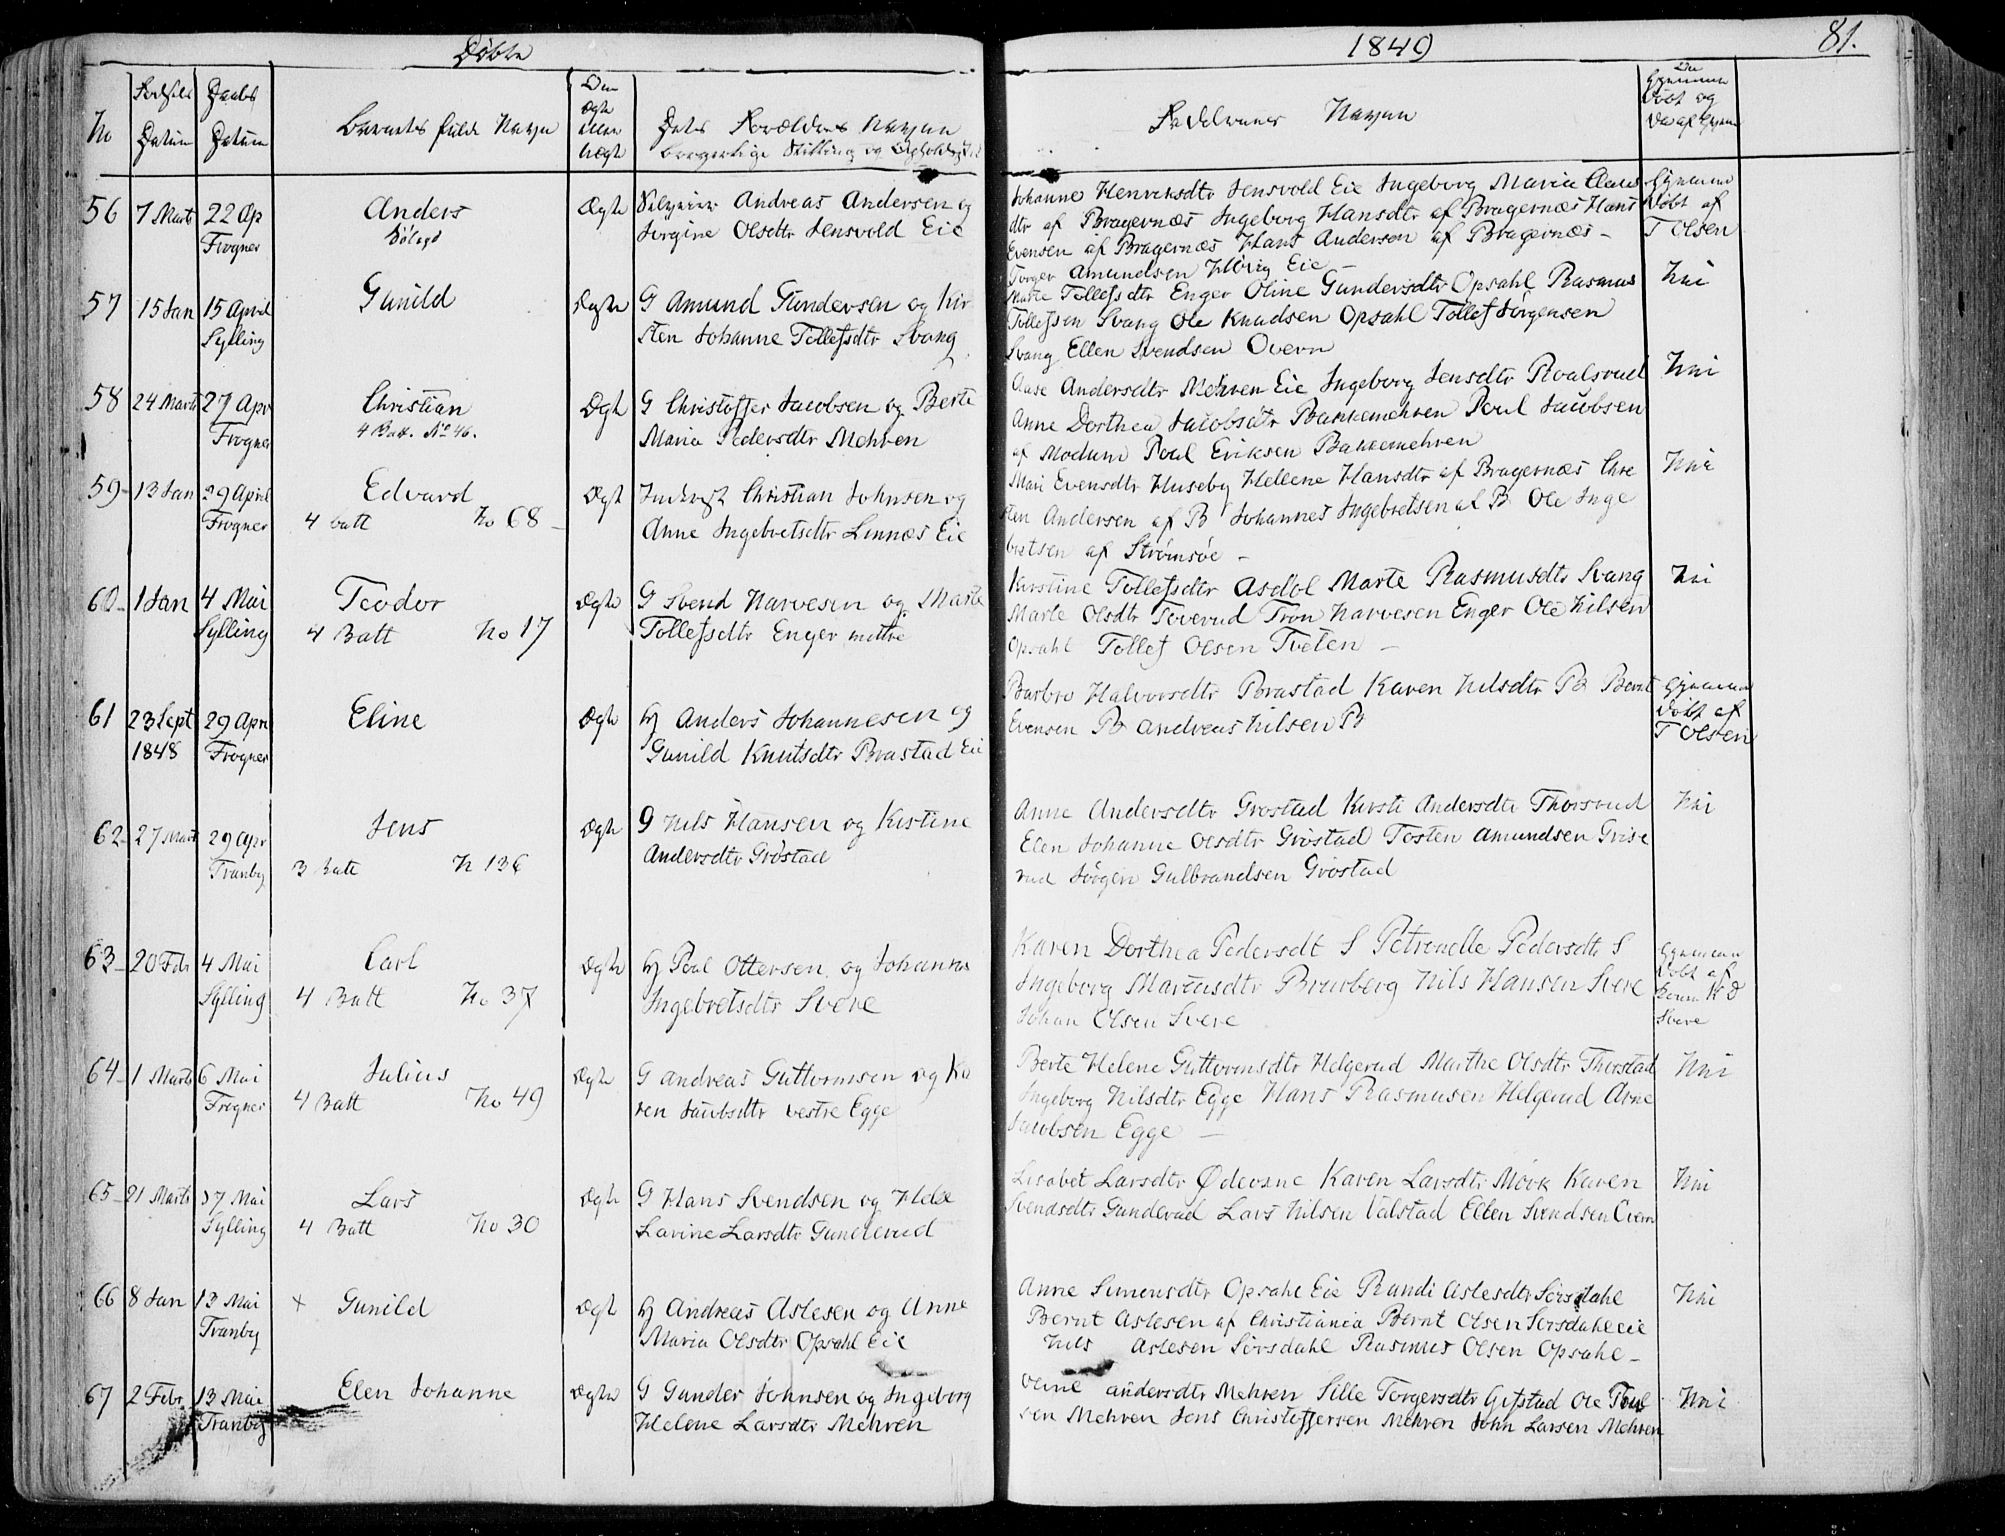 Døbte
1849
81.
No
Datum
Datum
Barnets fulde Navn
Den Ægte eller Uægte
Dets Forældres Navne
borgerlige Stilling og
Faddernes Navne
Døbt og
56
7 Marts
22 Ap
Frogner
Anders
Ægte
Andreas Andersen og
Jorgine Olsdtr Jensvold Eie
Johanne Henriksdtr Jensvold Eie Ingeborg Maria Claus
dtr af Bragernæs Ingeborg Hansdtr af Bragernæs Hans
Evensen af Bragernæs Hans Andersen af Bragernæs -
Torger Amundsen Hørig Eie
Hjemme
Døbt af
T Olsen
57
15 Jan
15 April
Sylling
Gunild
Ægte
G Amund Gundersen og Kir
sten Johanne Tollefsdtr Svang
Marte Tollefsdtr Enger Oline Gundersdtr Opsahl Rasmus
Tollefsen Svang Ole Knudsen Opsahl Tollef Jørgensen
Svang Ellen Svendsen Overn
Nei
58
24 Marts
27 Apr
Frogner
Christian
4 Batt. No 46.
Ægt
G Christoffer Jacobsen og Berte
Maria Pedersdtr Mehren
Aase Andersdtr Mehren Eie Ingeborg Jensdtr Roalsrud
Anne Dorthea Jacobsdtr Bakkemehren Poul Jacobsen
af Modum Poul Eriksen Bakkemehren
Nei
59
13 Jan
29 April
Frogner
Edvard
4 batt No 68
Ægt
Inderst Christian Johnsen og
Anne Ingebretsdtr Linnæs Eie
Mari Evensdtr Huseby Hellene Hansdtr af Bragernæs Chre
sten Andersen af B Johannes Ingebretsen af B Ole Inge
bretsen af Strømsøe -
Nei
60
1 Jan
4 Mai
Sylling
Teodor
4 Batt No 17
Ægte
G Svend Narvesen og Marte
Tollefsdtr Enger mettre
Kirstine Tollefsdtr Asdøl Marte Rasmusdtr Svang
Marte Olsdtr Toverud Tron Narvesen Enger Ole Nilsen
Opsahl Tollef Olsen Tveten -
Nei
61
23 Sept
1848
29 Apri
Frogner
Eline
Ægte
Hj Anders Johannesen og
Gunild Knutsdtr Brastad Eie
Barbro Halvorsdtr Brastad Karen Nilsdtr B Bernt
Evensen B Andreas Nilsen B
Hjemme
Døbt af
T Olsen
62
27 Marts
29 Apr
Tranby
Jens
3 Batt N 136
Ægte
G Nils Hansen og Kistine
Andersdtr Grøstad
Anne Andersdtr Grostad Kirsti Andersdtr Thorsrud
Elen Johanne Olsdtr Grøstad Tosten Amundsen Grise
rud Jørgen Gulbrandsen Grøstad
Nei
63
20 Febr
4 Mai
Sylling
Carl
4 Batt No 37
Ægte
Hj Poul Ottersen og Johanne
Ingebretsdtr Svere
Karen Dorthea Pedersdt S Petronelle Pedersdtr S
Ingeborg Mariusdtr Brurberg Nils Hansen Svere
Johan Olsen Svere
Hjemme
Døbt af
Svere
64
1 Marts
6 Mai
Frogner
Julius
4 Batt No 49
Ægte
G Andreas Guttormsen og Ka
ren Jacobsdtr vestre Egge
Berte Helene Guttormsdtr Helgerud Marthe Olsdtr Thorstad
Ingeborg Nilsdtr Egge Hans Rasmusen Helgerud Arne
Jacobsen Egge -
Nei
65
21 Marts
17 Mai
Sylling
Lars
4 Batt No 30
Ægte
G Hans Svendsen og Helle
Lavine Larsdtr Gunderud
Lisabet Larsdtr Ødevsne Karen Larsdtr Mörk Karen
Svendsdtr Gunderud Lars Nilsen Valstad Ellen Svendsen Overn
Nei
66
8 Jan
13 Mai
Tranby
+ Gunild
Ægte
Hj Andreas Aslesen og Anne
Maria Olsdtr Opsahl Eie
Anne Simensdtr Opsahl Eie Randi Aslesdtr Sørsdahl
Bernt Aslesen af Christiania Bernt Olsen Sørsdahl eie
Nils Aslesen Sörsdahl Rasmus Olsen Opsahl -
Nei
67
2 Febr
13 Mai
Tranby
Elen Johanne
Ægte
G Gunder Johnsen og Ingeborg
Helene Larsdtr Mehren
Oline Andersdtr Mehren Sille Torgersdtr Gifstad Ole Poul
sen Mehren Jens Christoffersen Mehren John Larsen Mehren
Nei